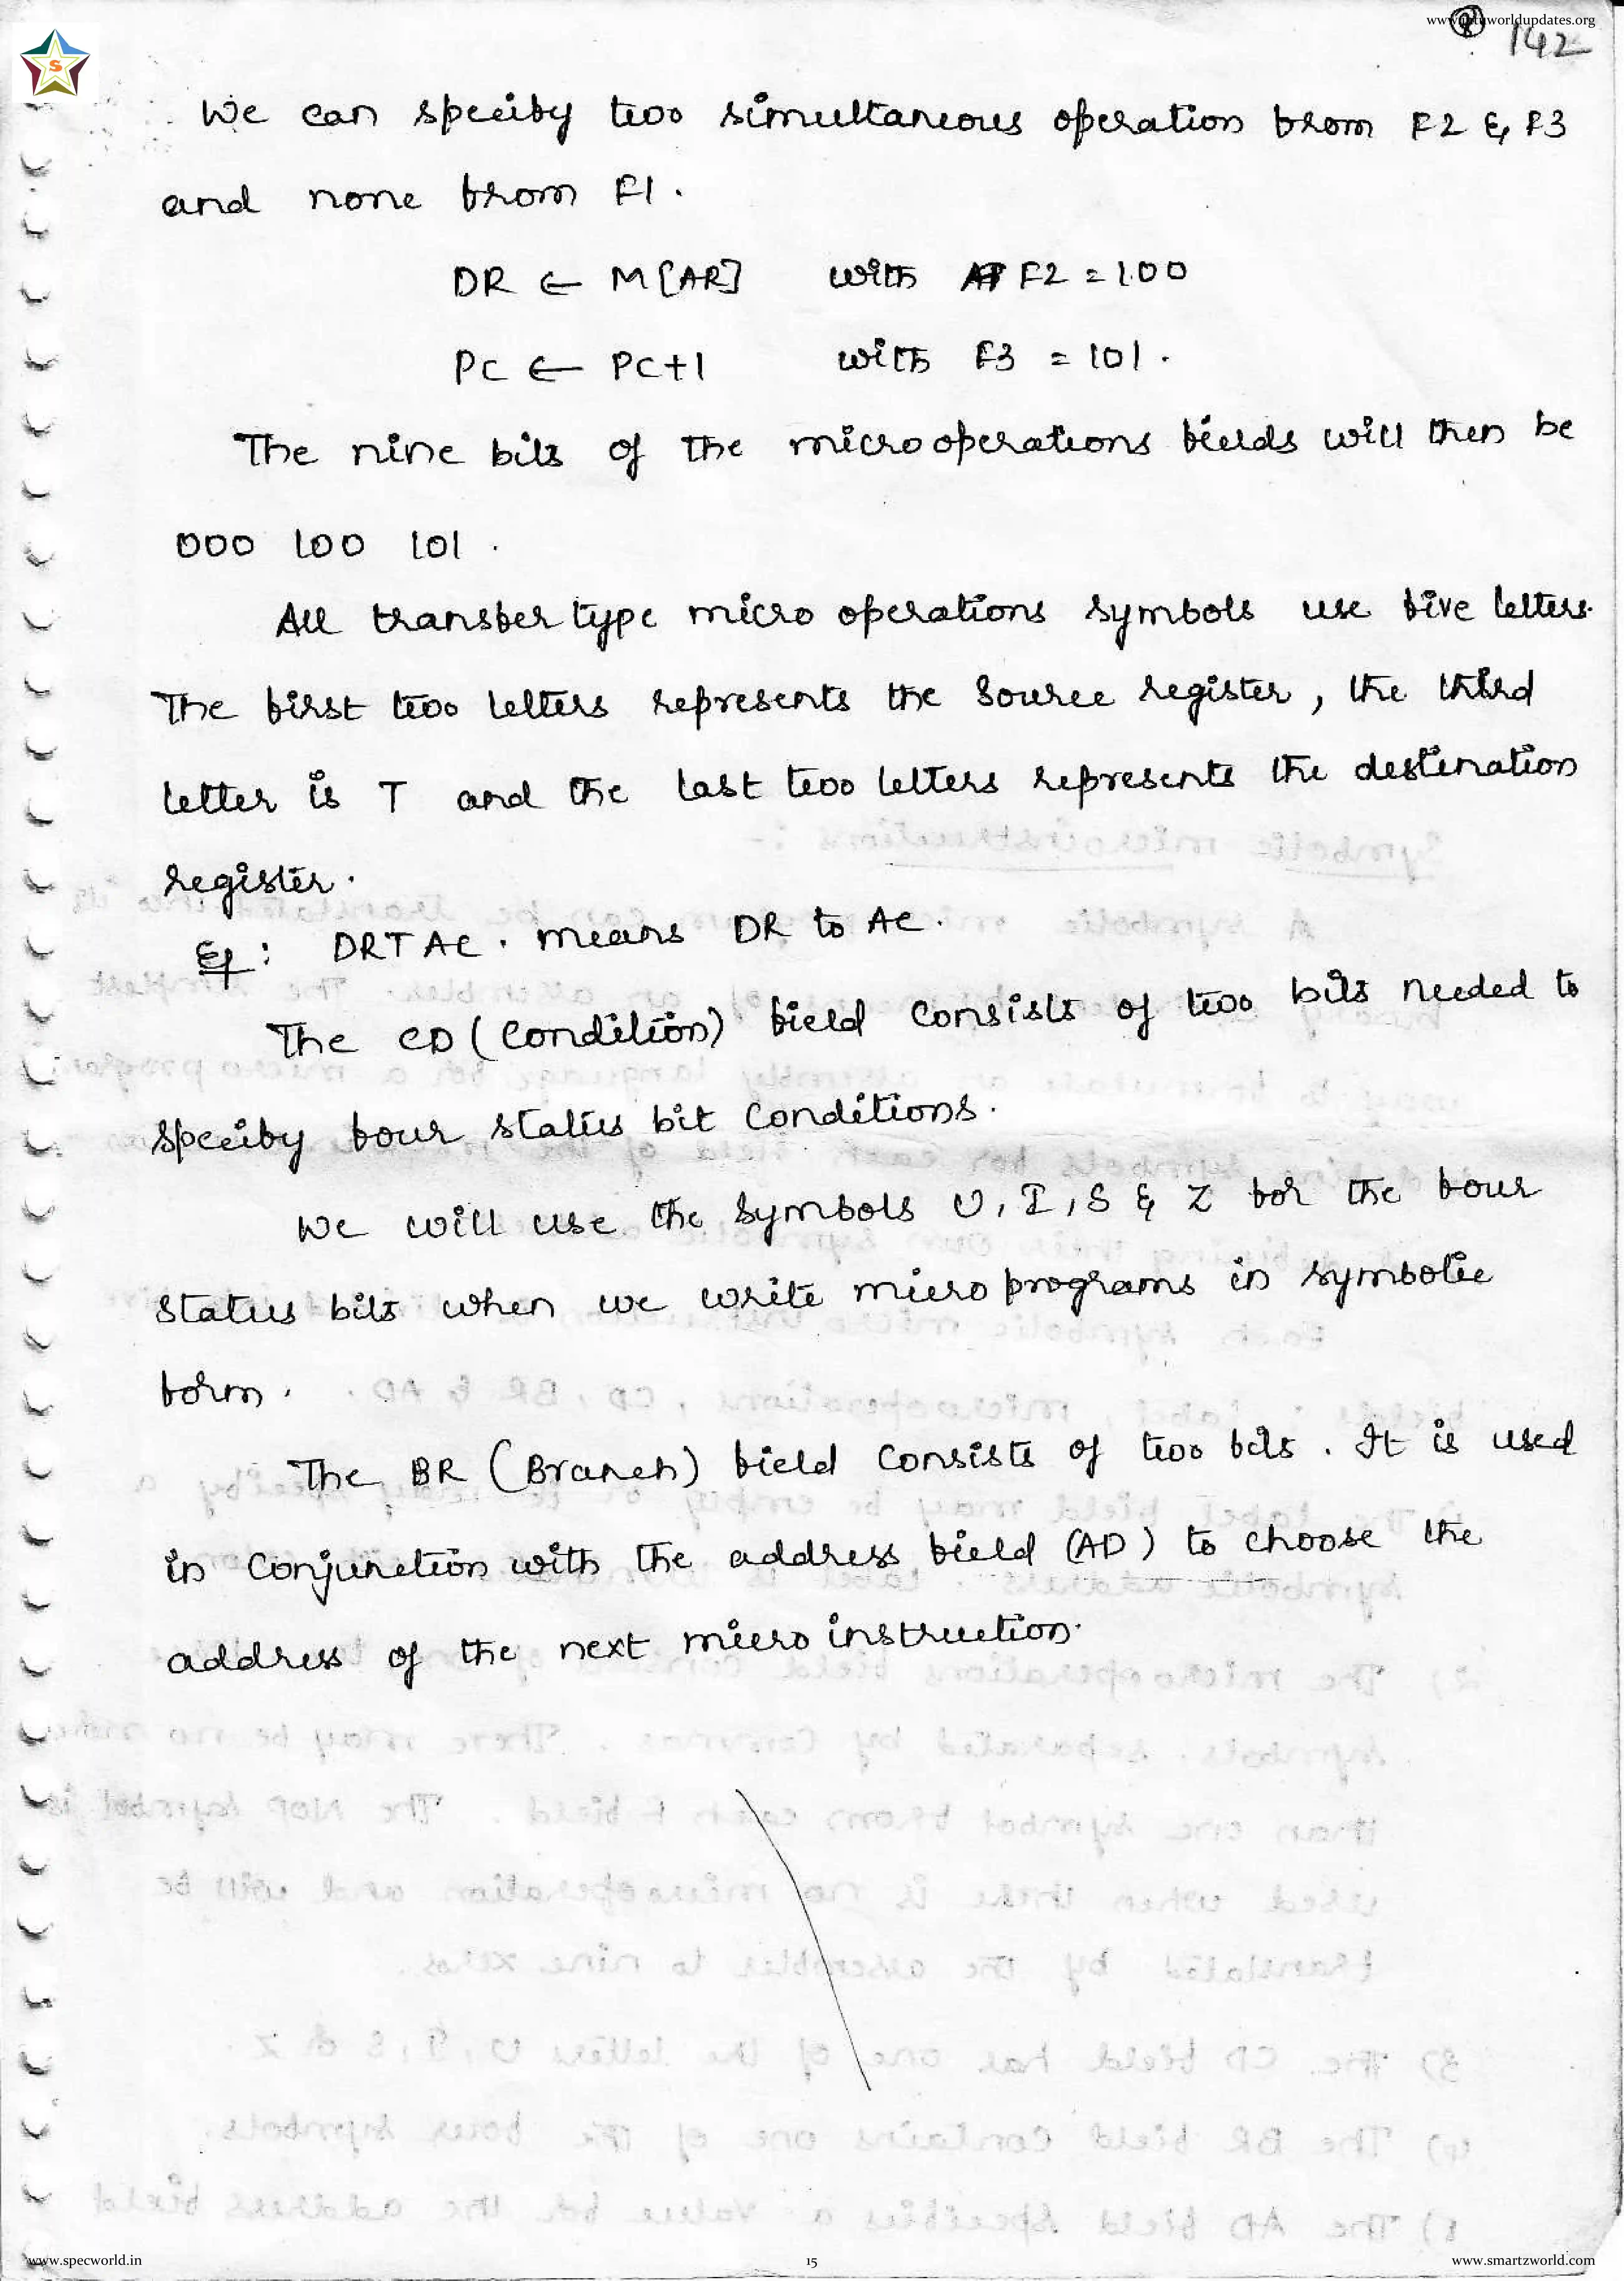 www.jntuworldupdates.org
142
We can specify two simultaneous operation from F2 & F3
and none from F1.
DR ← M[AR] with F2 = 100
PC ← PC+1 with F3 = 101.
The nine bits of the microoperations fields will then be
000 100 101.
All transfer type micro operations symbols use five letters.
The first two letters represents the source register, the third
letter is T and the last two letters represents the destination
register.
Eg: DRTAC. means DR to AC.
The CD (Condition) field consists of two bits needed to
specify four status bit conditions.
We will use the symbols U, I, S & Z for the four
status bits when we write micro programs in symbolic
form.
The BR (Branch) field consists of two bits. It is used
in conjunction with the address field (AD) to choose the
address of the next micro instruction.
www.specworld.in
15
www.smartzworld.com